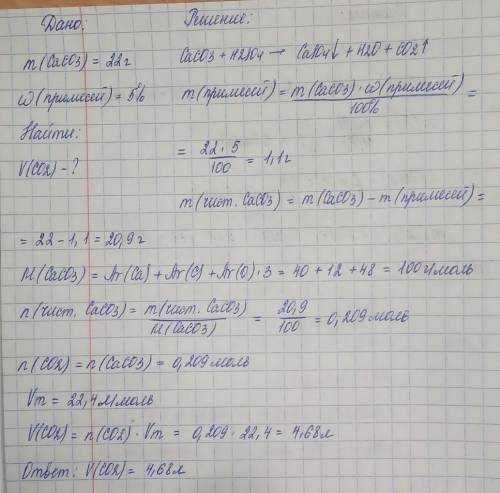 Дано:
Решение:
m(CaCO3) = 22г
CaCO3 + H2SO4 → CaSO4↓ + H2O + CO2↑
ω(примесей) = 5%
m(примесей) = m(CaCO3) · ω(примесей) / 100% =
Найти:
V(CO2) - ?
= 22 · 5 / 100 = 1,1г
m(чист. CaCO3) = m(CaCO3) - m(примесей) =
= 22 - 1,1 = 20,9г
M(CaCO3) = Ar(Ca) + Ar(C) + Ar(O) · 3 = 40 + 12 + 48 = 100г/моль
n(чист. CaCO3) = m(чист. CaCO3) / M(CaCO3) = 20,9 / 100 = 0,209 моль
n(CO2) = n(CaCO3) = 0,209 моль
Vm = 22,4 л/моль
V(CO2) = n(CO2) · Vm = 0,209 · 22,4 = 4,68л
Ответ: V(CO2) = 4,68л